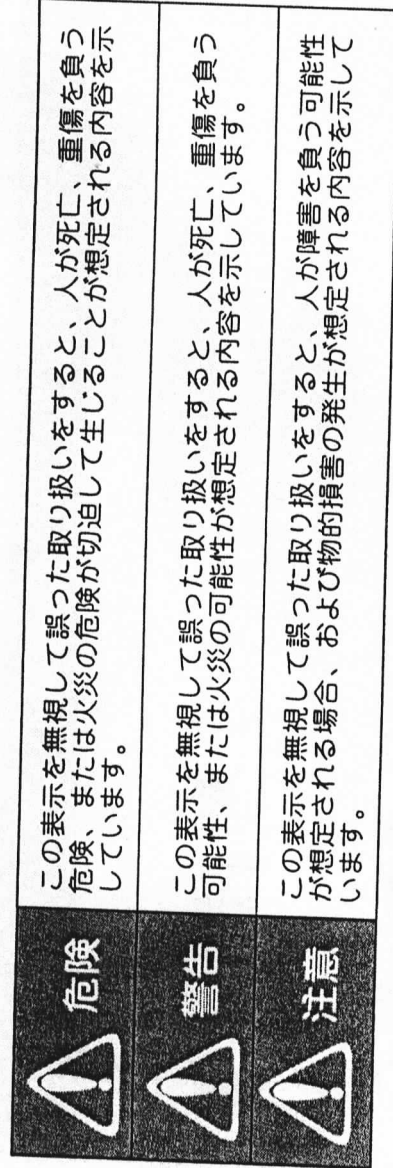 危険
この表示を無視して誤った取り扱いをすると、人が死亡、重傷を負う
危険、または火災の危険が切迫して生じることが想定される内容を示
しています。
警告
この表示を無視して誤った取り扱いをすると、人が死亡、重傷を負う
可能性、または火災の可能性が想定される内容を示しています。
注意
この表示を無視して誤った取り扱いをすると、人が障害を負う可能性
が想定される場合、および物的損害の発生が想定される内容を示して
います。